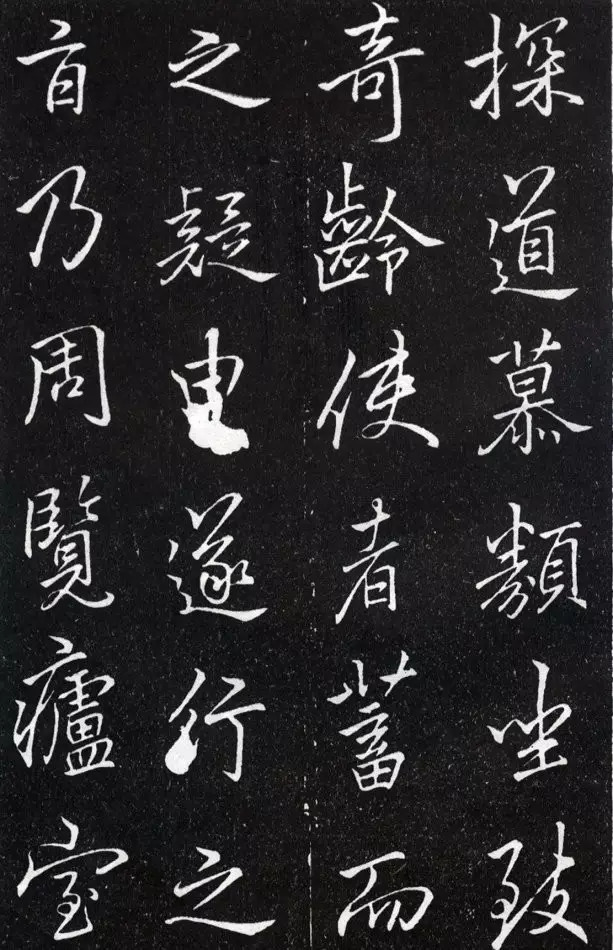 探道慕類坐致
奇齡使者蓄而
之疑申遂行之
旨乃周覽廬室